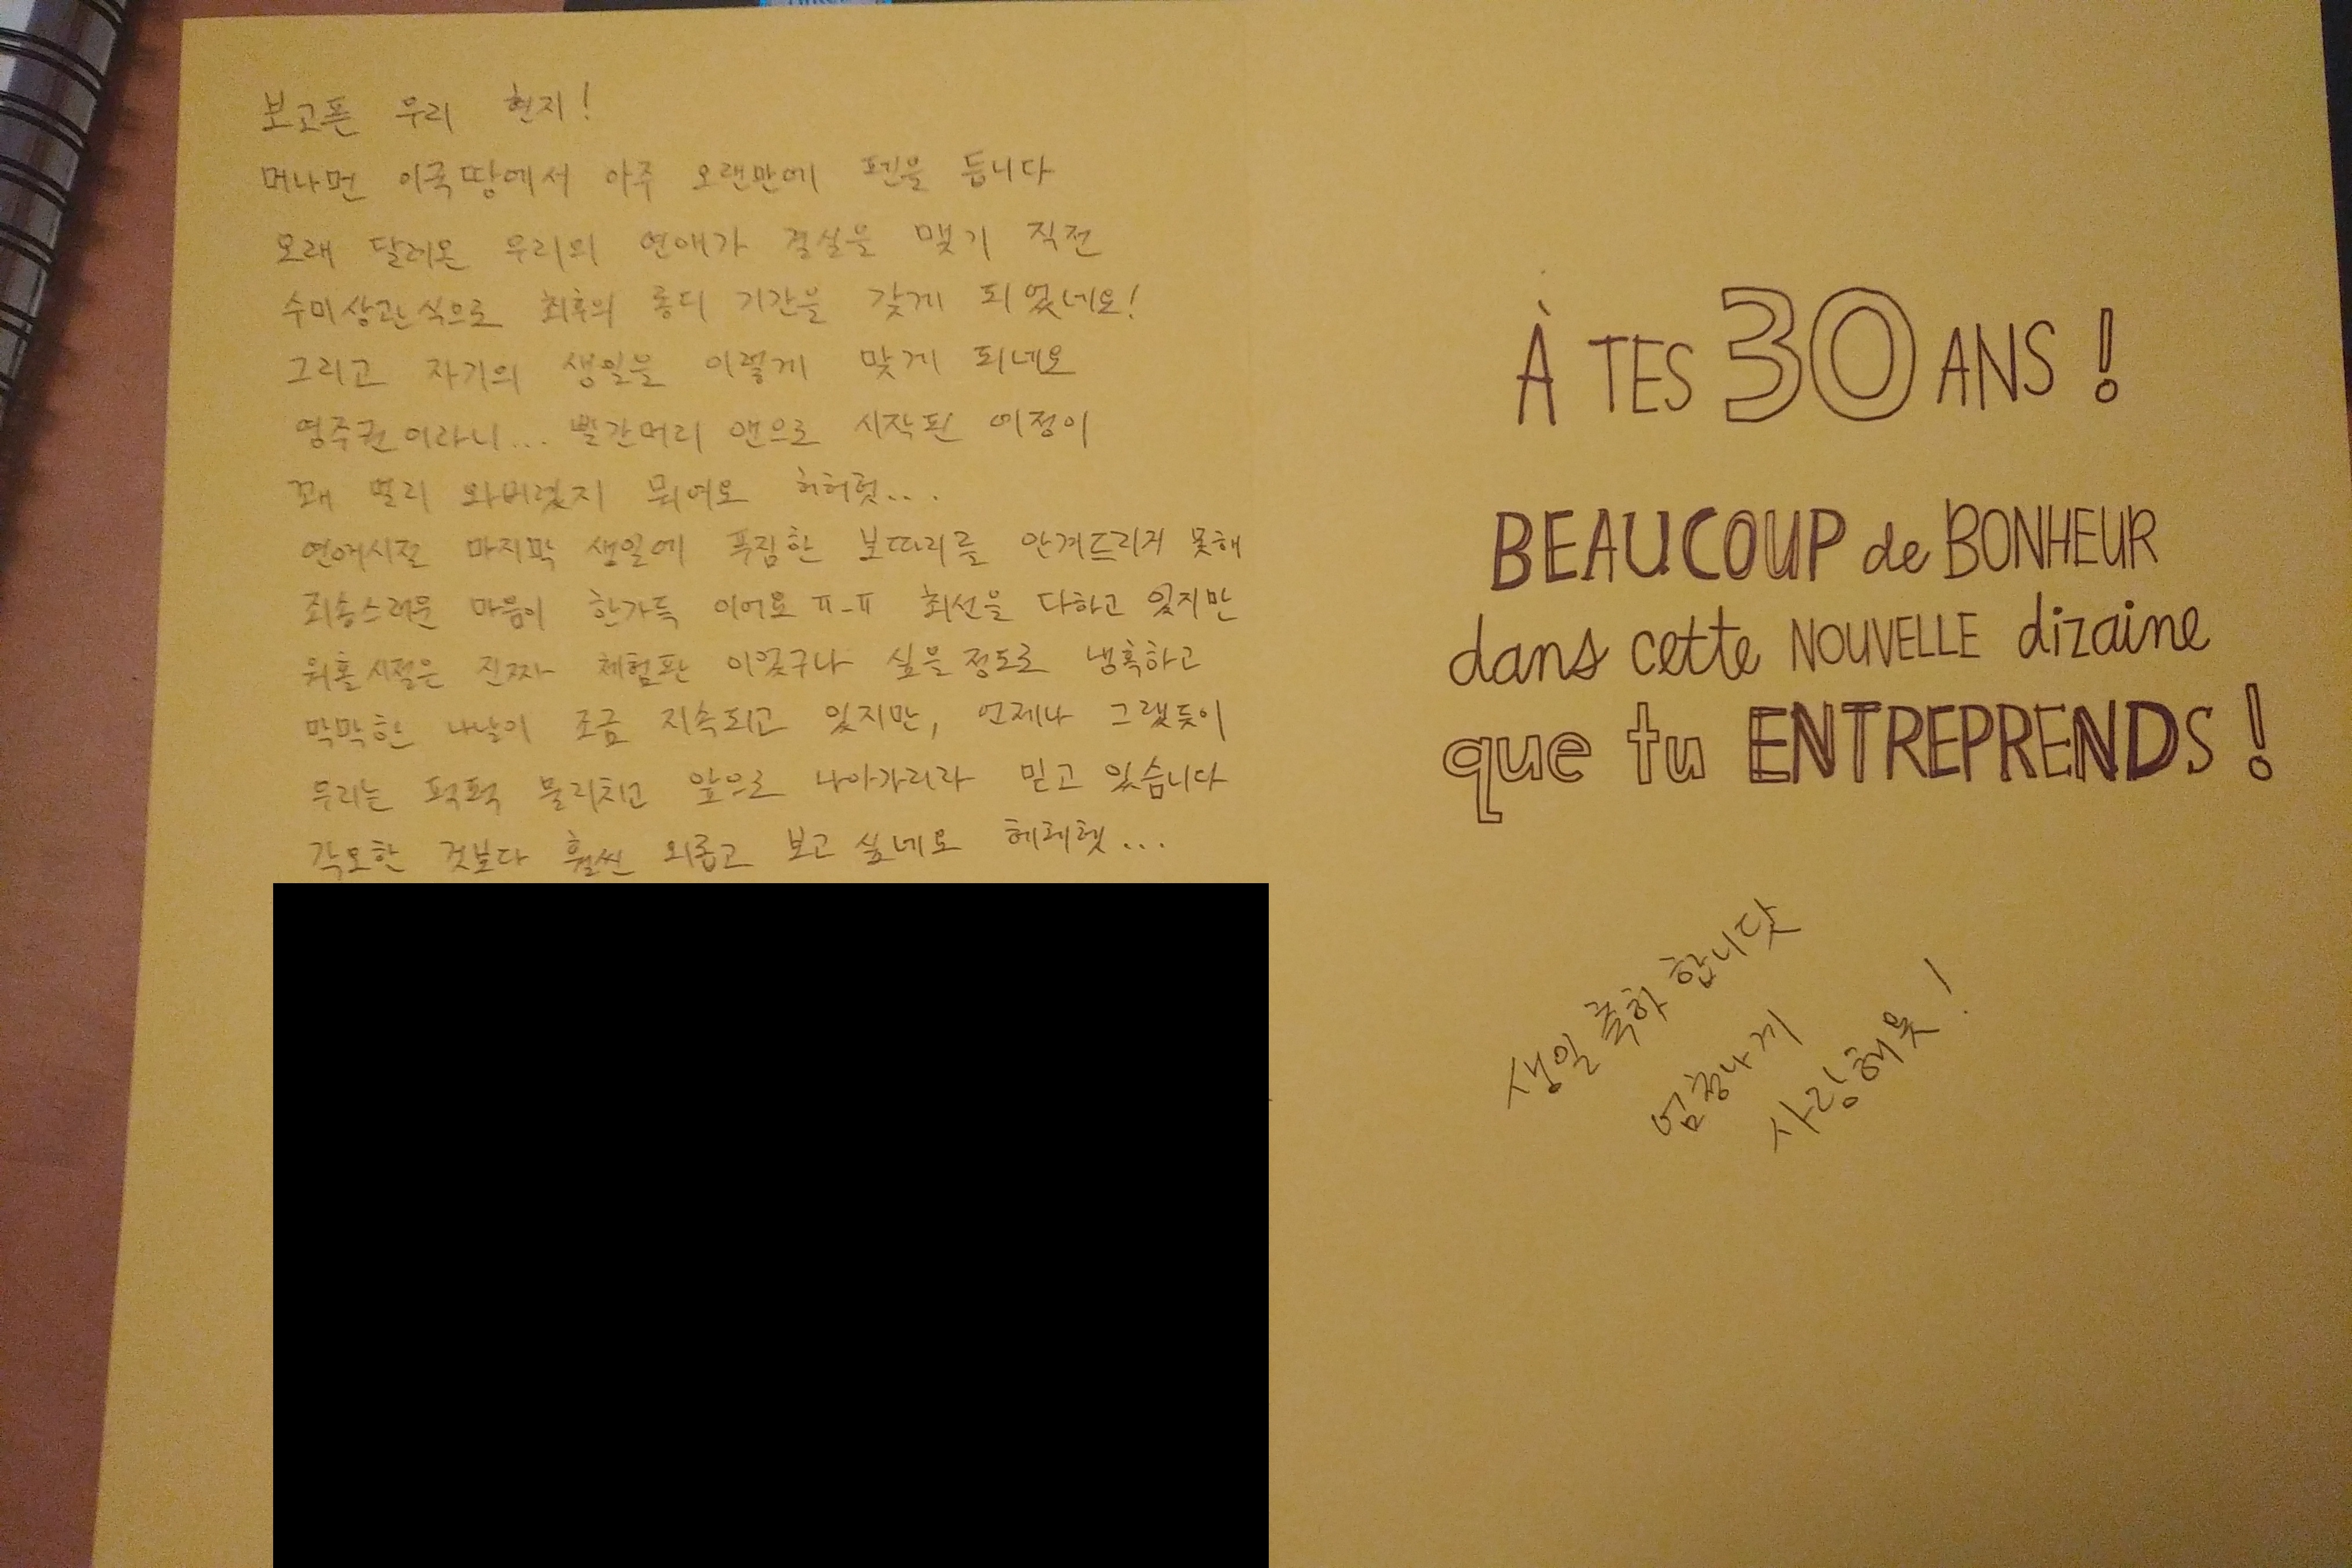 보고픈 우리 현지!
머나먼 이국땅에서 아주 오랜만에 펜을 듭니다
오래 달려온 우리의 연애가 결실을 맺기 직전
수미상관식으로 최후의 롱디 기간을 갖게 되었네요!
그리고 자기의 생일을 이렇게 맞게 되네요
영주권이라니... 빨간머리 앤으로 시작된 여정이
꽤 멀리 와버렸지 뭐에요 허허헛...
연애시절 마지막 생일에 푸짐한 보따리를 안겨드리지 못해
죄송스러운 마음이 한가득 이에요 ㅠ-ㅠ 최선을 다하고 있지만
워홀시절은 진짜 체험판 이었구나 싶을정도로 냉혹하고
막막한 나날이 조금 지속되고 있지만, 언제나 그랬듯이
우리는 퍽퍽 물리치고 앞으로 나아가리라 믿고 있습니다
각오한 것보다 훨씬 외롭고 보고싶네요 헤헤헷...
À TES 30 ANS !
BEAUCOUP de BONHEUR
dans cette NOUVELLE dizaine
que tu ENTREPRENDS !
생일 축하 합니닷
엄청나게
사랑해욧!